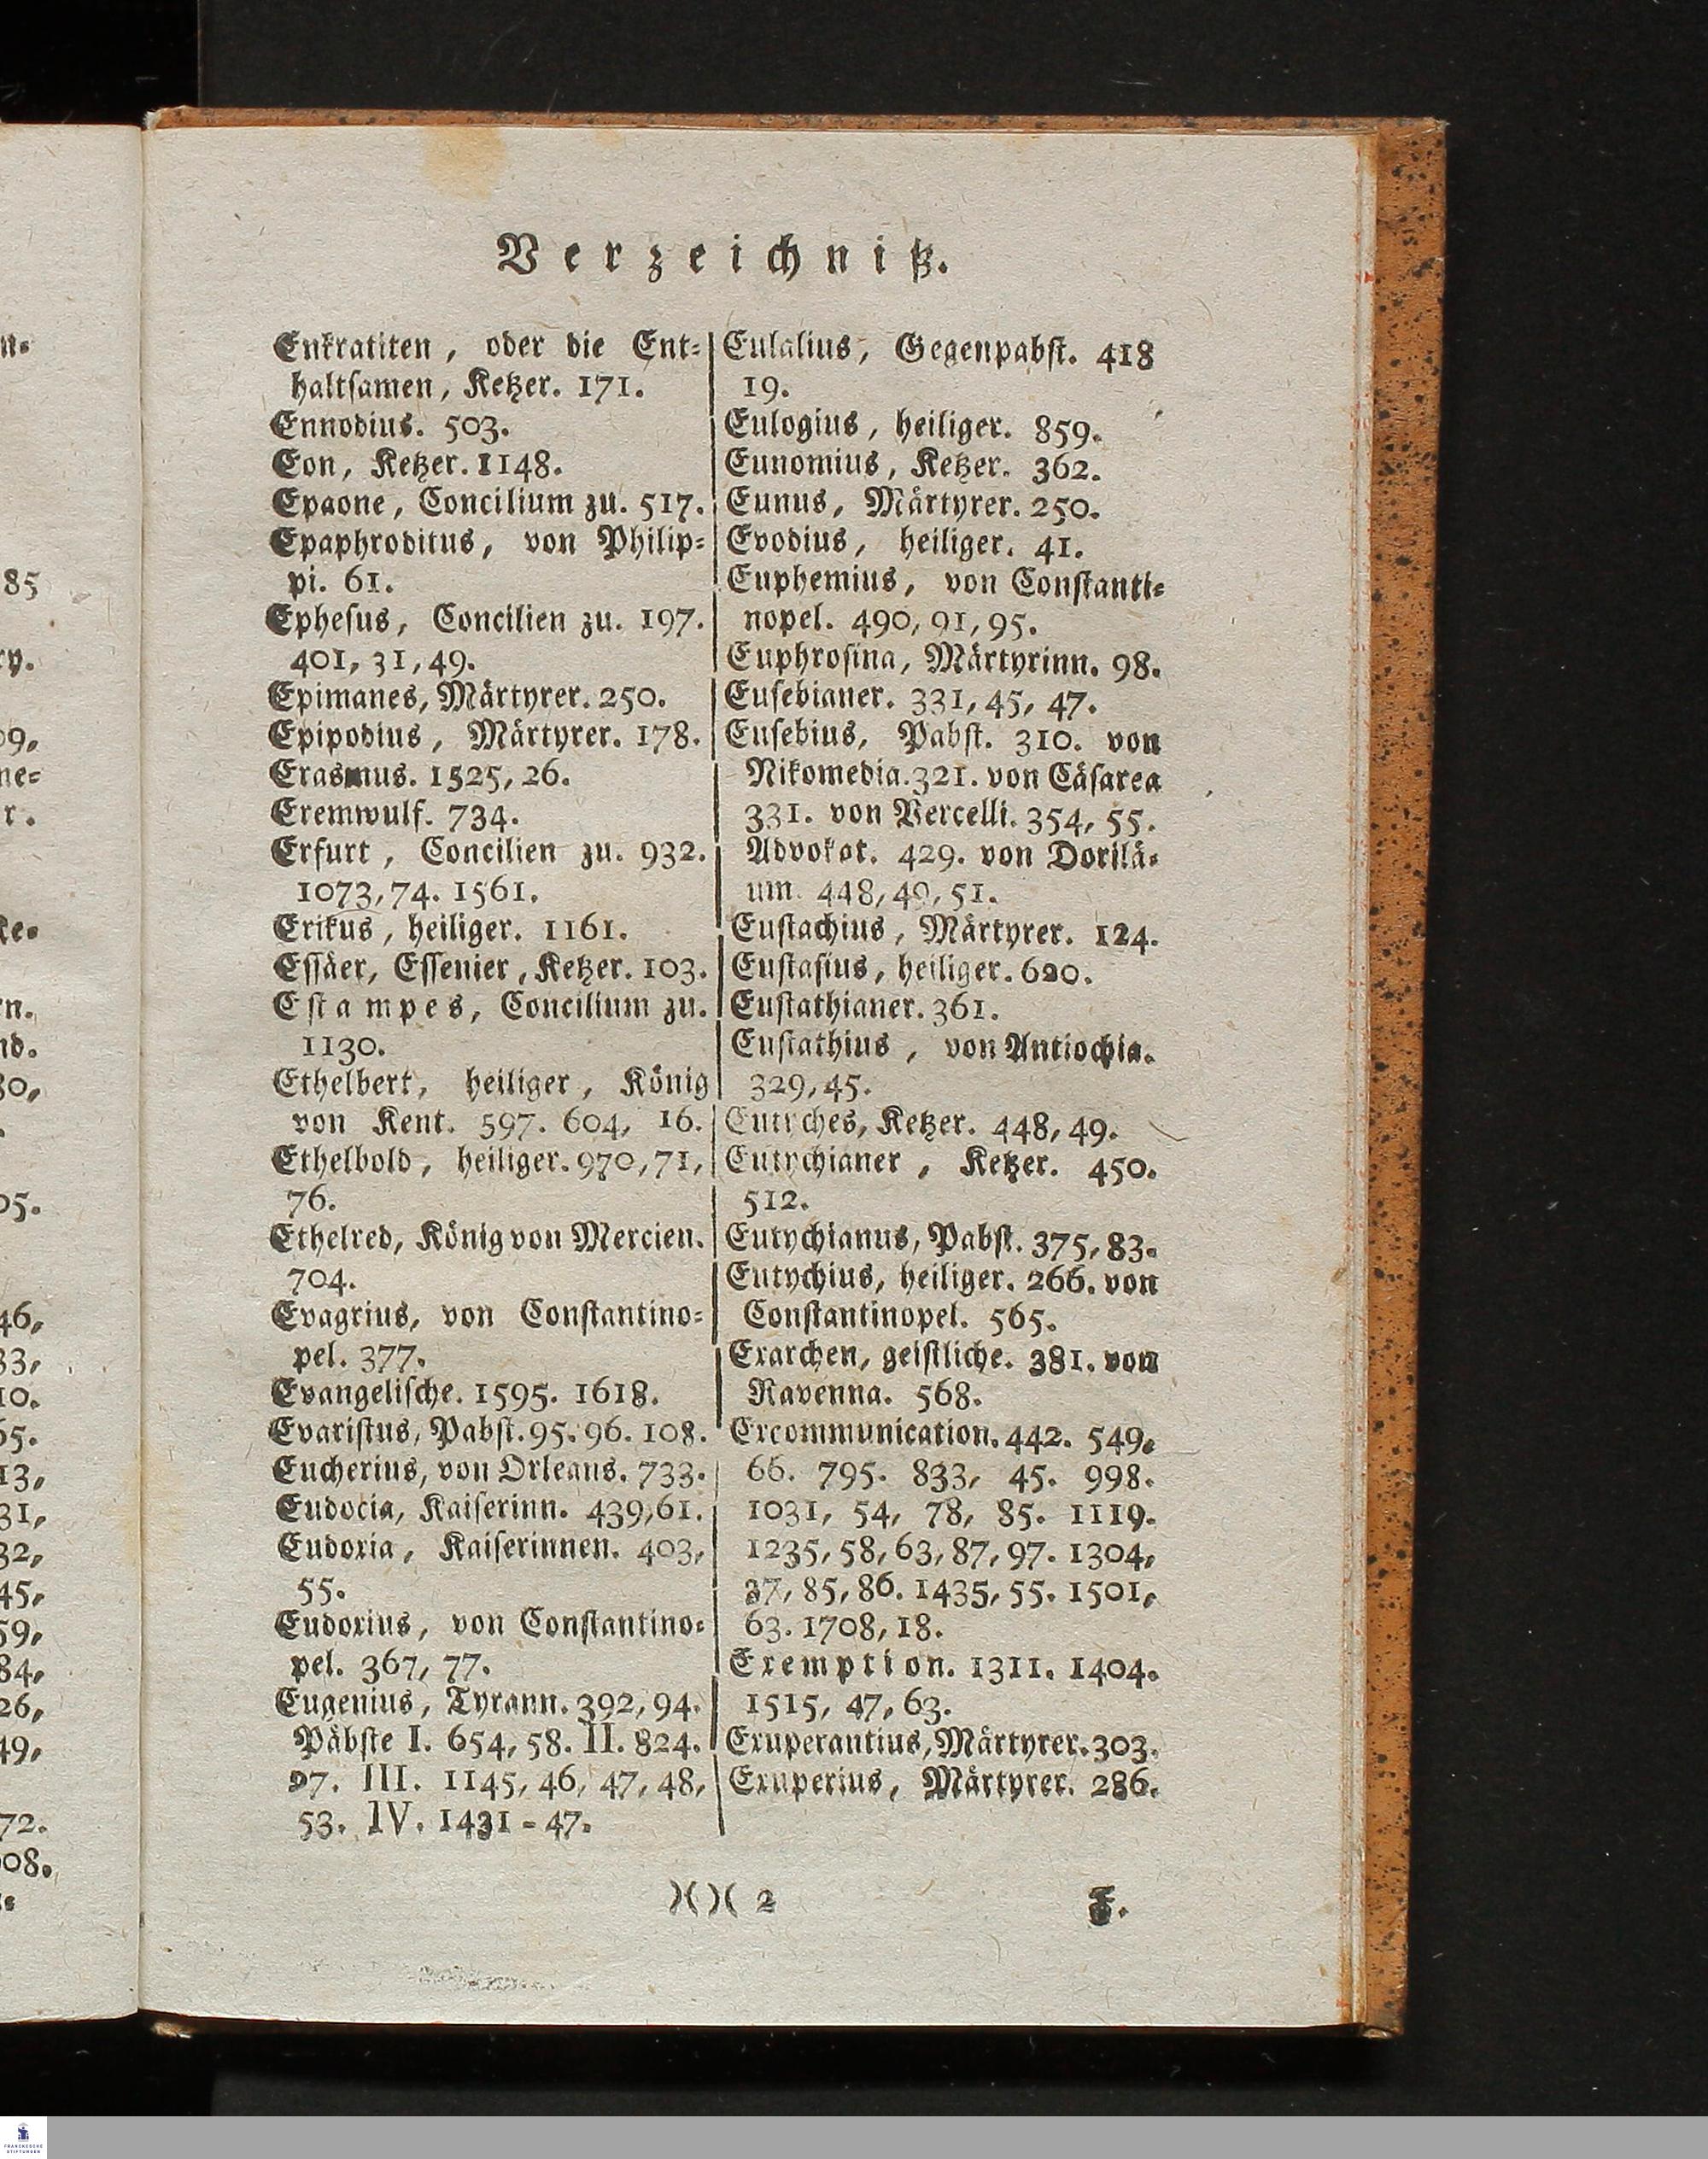 Verzeichniß.
Enkratiten, oder die Ent-
haltsamen, Ketzer. 171.
Ennodius. 503.
Eon, Ketzer. 1148.
Epaone, Concilium zu. 517.
Epaphroditus, von Philip-
pi. 61.
Ephesus, Concilien zu. 197.
401, 31, 49.
Epimanes, Märtyrer. 250.
Epipodius, Märtyrer. 178.
Erasmus. 1525, 26.
Eremwulf. 734.
Erfurt, Concilien zu. 932.
1073, 74. 1561.
Erikus, heiliger. 1161.
Essäer, Essenier, Ketzer. 103.
Estampes, Concilium zu.
1130.
Ethelbert, heiliger, König
von Kent. 597. 604, 16.
Ethelbold, heiliger. 970, 71,
76.
Ethelred, König von Mercien.
704.
Evagrius, von Constantino-
pel. 377.
Evangelische. 1595. 1618.
Evaristus, Pabst. 95. 96. 108.
Eucherius, von Orleans. 733.
Eudocia, Kaiserinn. 439, 61.
Eudoxia, Kaiserinnen. 403,
55.
Eudoxius, von Constantino-
pel. 367, 77.
Eugenius, Tyrann. 392, 94.
Päbste I. 654, 58. II. 824.
27. III. 1145, 46, 47, 48,
53. IV. 1431-47.
Eulalius, Gegenpabst. 418
19.
Eulogius, heiliger. 859.
Eunomius, Ketzer. 362.
Eunus, Märtyrer. 250.
Evodius, heiliger. 41.
Euphemius, von Constanti-
nopel. 490, 91, 95.
Euphrosina, Märtyrinn. 98.
Eusebianer. 331, 45, 47.
Eusebius, Pabst. 310. von
Nikomedia. 321. von Cäsarea
331. von Vercelli. 354, 55.
Advokat. 429. von Dorilä-
um. 448, 49, 51.
Eustachius, Märtyrer. 124.
Eustasius, heiliger. 620.
Eustathianer. 361.
Eustathius, von Antiochia.
329, 45.
Eutyches, Ketzer. 448, 49.
Eutychianer, Ketzer. 450.
512.
Eutychianus, Pabst. 375, 83.
Eutychius, heiliger. 266. von
Constantinopel. 565.
Exarchen, geistliche. 381. von
Ravenna. 568.
Excommunication. 442. 549,
66. 795. 833, 45. 998.
1031, 54, 78, 85. 1119.
1235, 58, 63, 87, 97. 1304,
37, 85, 86. 1435, 55. 1501,
63. 1708, 18.
Exemption. 1311. 1404.
1515, 47, 63.
Exuperantius, Märtyrer. 303.
Exuperius, Märtyrer. 286.
)( )( 2
F.
FRANCKESCHE
STIFTUNGEN